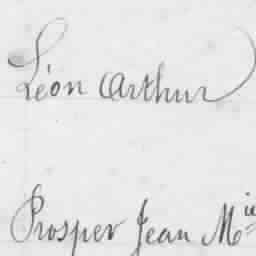 Léon Arthur
Prosper Jean M^ie